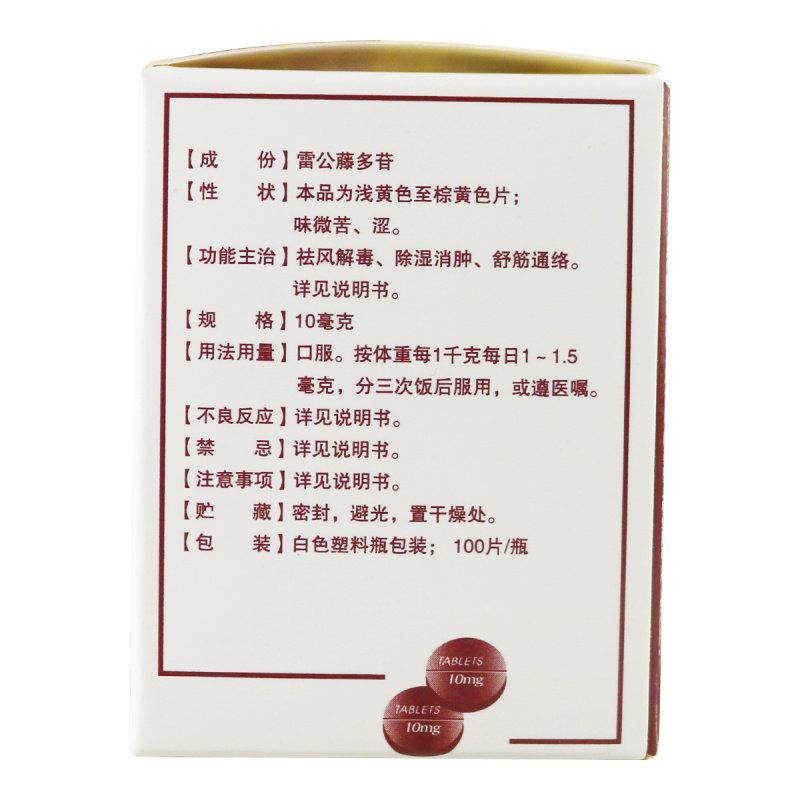 【成　　份】雷公藤多苷
【性　　状】本品为浅黄色至棕黄色片；
味微苦、涩。
【功能主治】祛风解毒、除湿消肿、舒筋通络。
详见说明书。
【规　　格】10毫克
【用法用量】口服。按体重每1千克每日1~1.5
毫克，分三次饭后服用，或遵医嘱。
【不良反应】详见说明书。
【禁　　忌】详见说明书。
【注意事项】详见说明书。
【贮　　藏】密封，避光，置干燥处。
【包　　装】白色塑料瓶包装； 100片/瓶
TABLETS
10mg
TABLETS
10mg